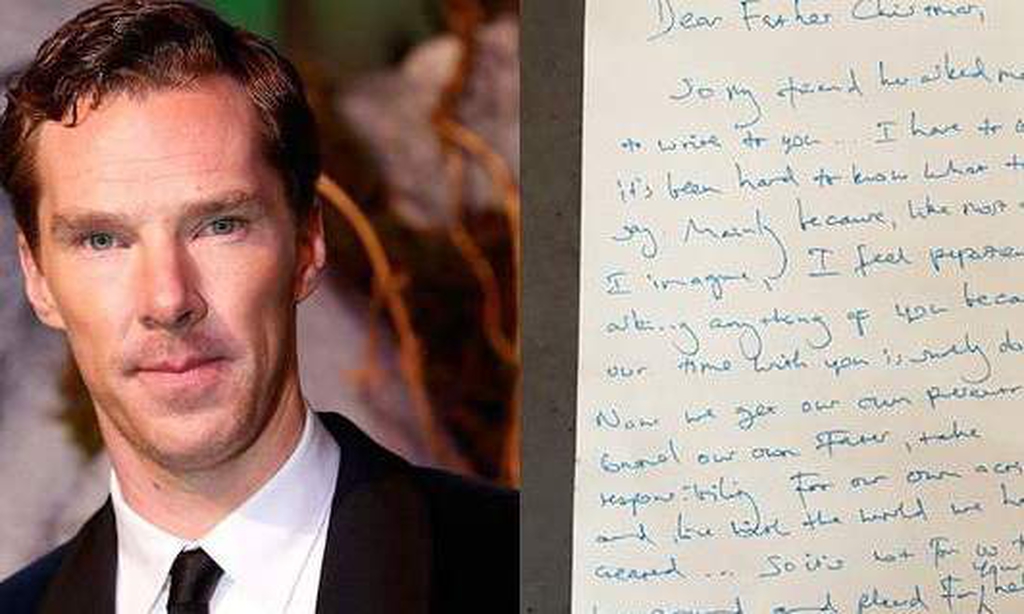 Dear Father Christmas,
So my friend has asked me
to write to you... I have to
it's been hard to know what to
say. Mainly because, like most
I imagine, I feel
asking anything of you beca
our time with you is surely do
Now we get our own presents
our own
responsibility for our own
and the world we ha
... So it's not for us to
and plead